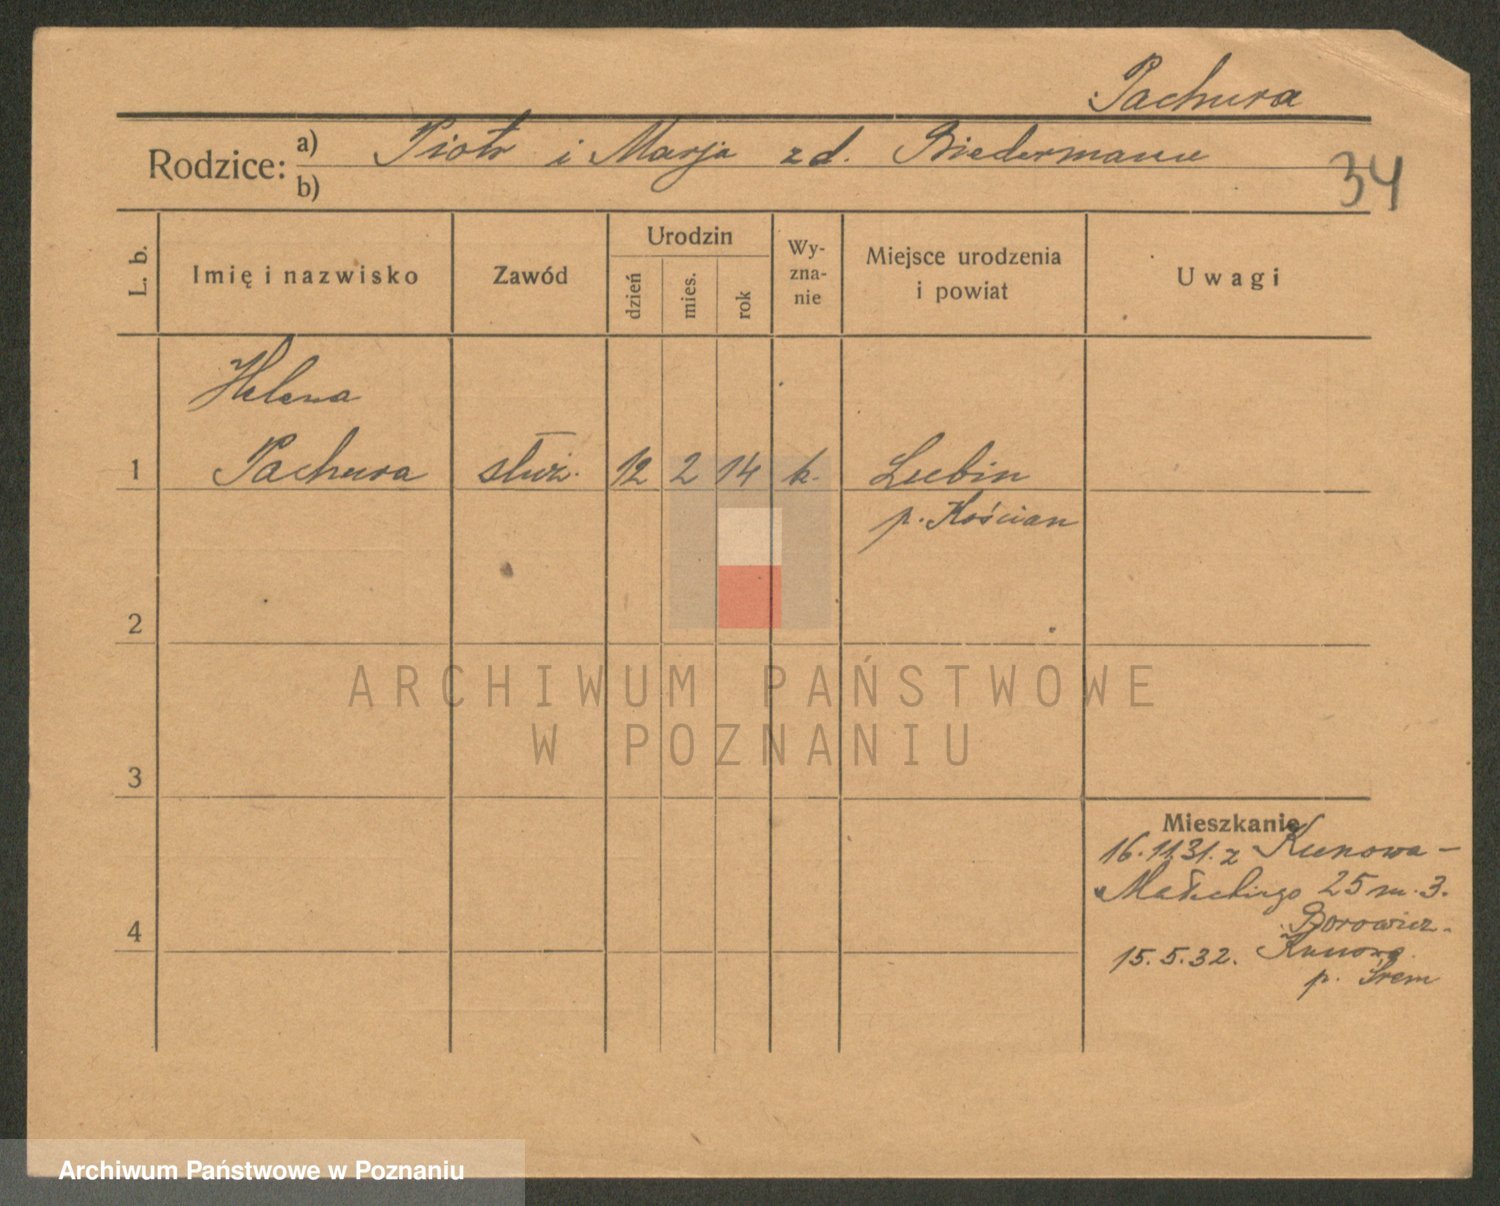 Pachura
Rodzice: a) Piotr i Marja z d. Biedermann
b)
34
L. b.
Imię i nazwisko
Zawód
Urodzin
dzień
mies.
rok
Wy-
zna-
nie
Miejsce urodzenia
i powiat
Uwagi
Helena
1 Pachura służ. 12 2 14 k. Lubin
p. Kościan
2
ARCHIWUM PAŃSTWOWE
W POZNANIU
3
Mieszkanie
16.11.31. z Kunowa -
Małeckiego 25 m. 3.
Borowicz.
4
15.5.32. Kunowo
p. Śrem
Archiwum Państwowe w Poznaniu